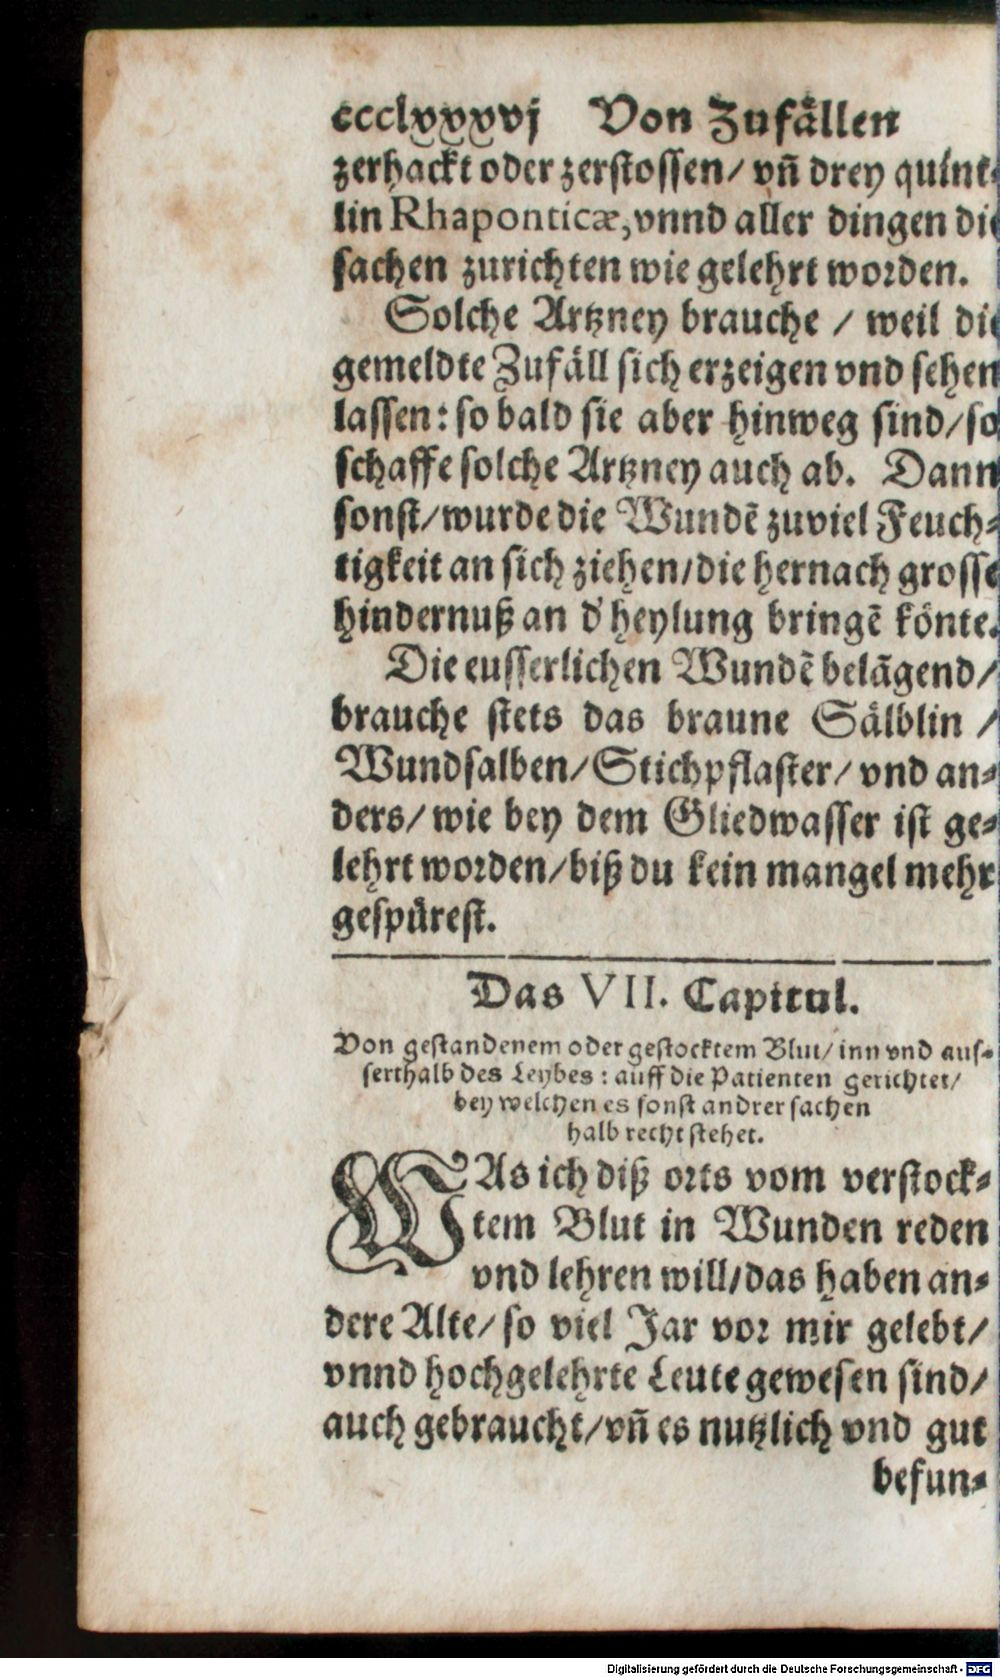 ccclxxxvj Von Zufällen
zerhackt oder zerstossen/ vñ drey quint-
lin Rhaponticæ, vnnd aller dingen die
sachen zurichten wie gelehrt worden.
Solche Artzney brauche / weil die
gemeldte Zufäll sich erzeigen vnd sehen
lassen: so bald sie aber hinweg sind/ so
schaffe solche Artzney auch ab. Dann
sonst/ wurde die Wundẽ zuviel Feuch-
tigkeit an sich ziehen/ die hernach grosse
hindernuß an d' heylung bringẽ könte.
Die eusserlichen Wundẽ belãgend/
brauche stets das braune Sälblin /
Wundsalben/ Stichpflaster/ vnd an-
ders/ wie bey dem Gliedwasser ist ge-
lehrt worden/ biß du kein mangel mehr
gespürest.
Das VII. Capitul.
Von gestandenem oder gestocktem Blut/ inn vnd aus-
serthalb des Leybes: auff die Patienten gerichtet/
bey welchen es sonst andrer sachen
halb recht stehet.
WAs ich diß orts vom verstock-
tem Blut in Wunden reden
vnd lehren will/ das haben an-
dere Alte/ so viel Jar vor mir gelebt/
vnnd hochgelehrte Leute gewesen sind/
auch gebraucht/ vñ es nutzlich vnd gut
befun-
Digitalisierung gefördert durch die Deutsche Forschungsgemeinschaft - DFG